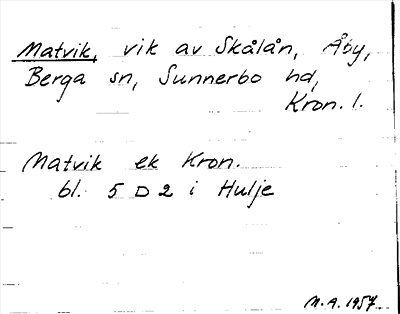 Matvik, vik av Skålån, Åby,
Berga sn, Sunnerbo hd,
Kron. l.
Matvik ek Kron.
bl. 5 D 2 i Hulje
M.A. 1957.